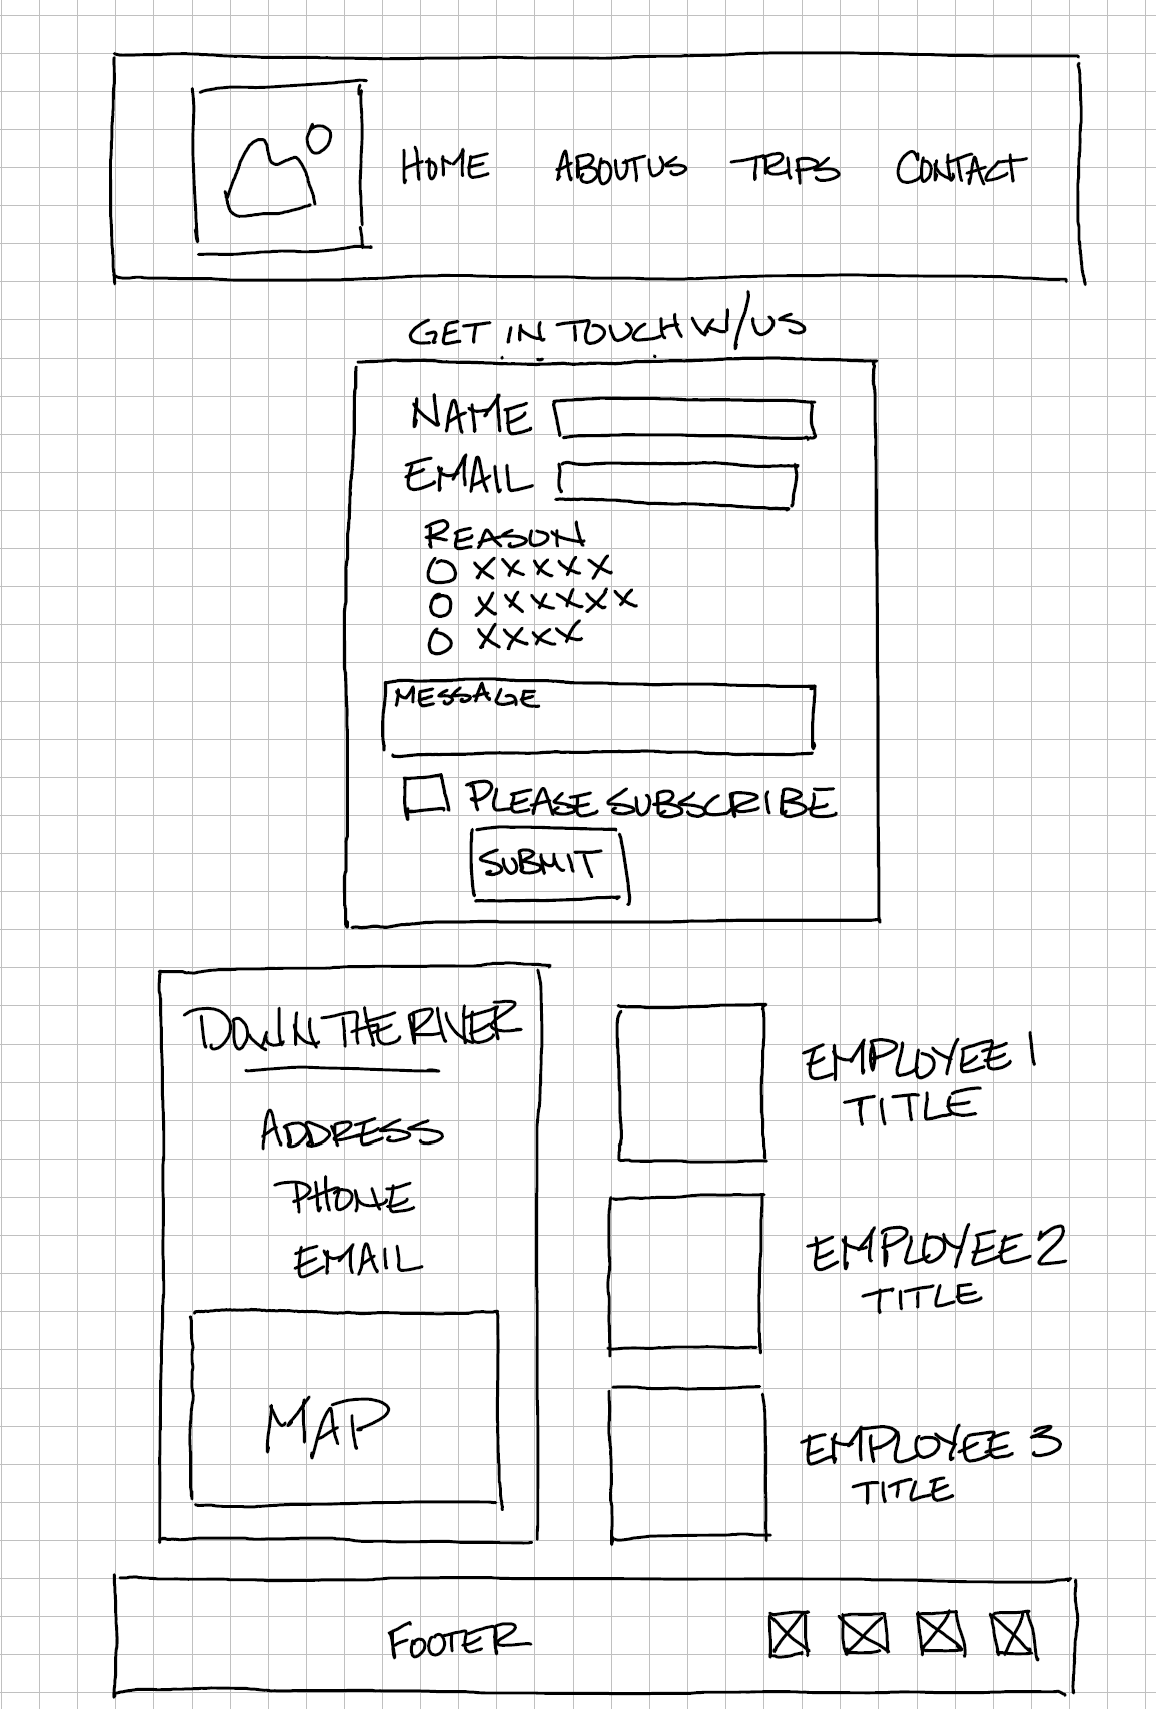 HOME ABOUT US TRIPS CONTACT
GET IN TOUCH W/US
NAME
EMAIL
REASON
XXXXX
XXXXXX
XXXX
MESSAGE
PLEASE SUBSCRIBE
SUBMIT
DOWN THE RIVER
ADDRESS
PHONE
EMAIL
MAP
EMPLOYEE 1
TITLE
EMPLOYEE 2
TITLE
EMPLOYEE 3
TITLE
FOOTER